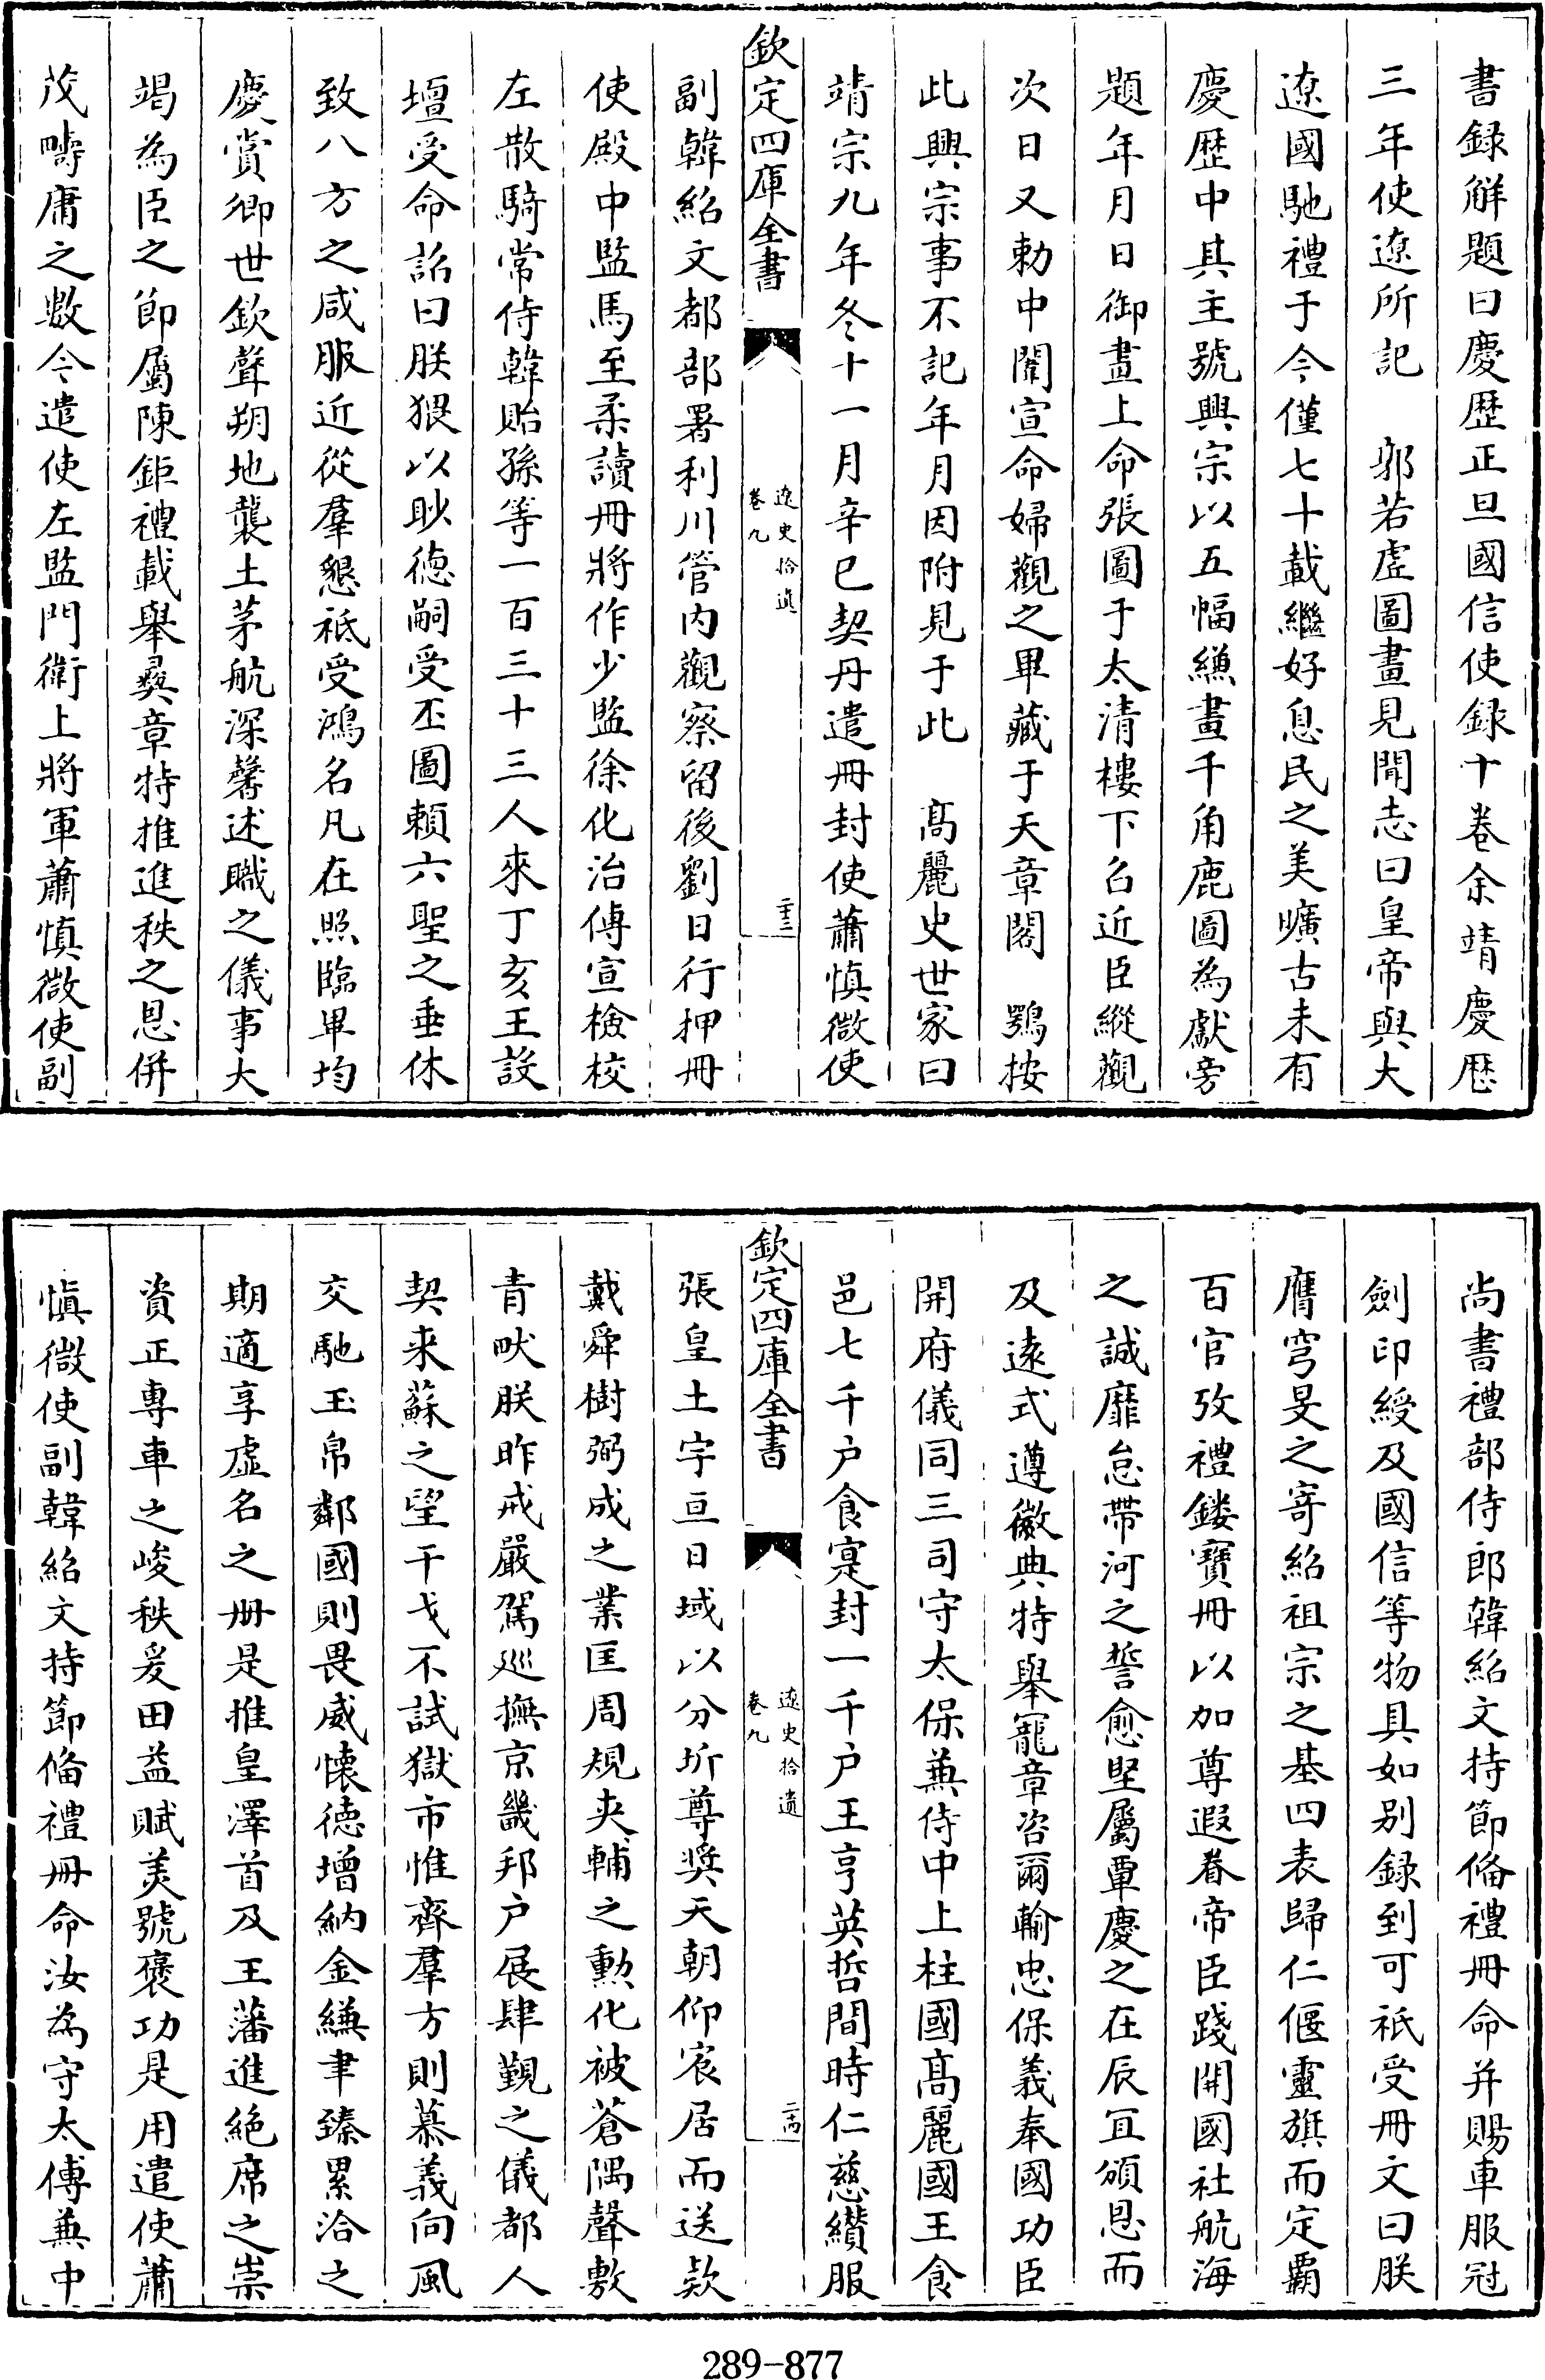 書録解題曰慶歴正旦國信使録十卷余靖慶歴
三年使遼所記　郭若虛圖畫見聞志曰皇帝與大
遼國馳禮于今僅七十載繼好息民之美曠古未有
慶歴中其主號興宗以五幅縑畫千角鹿圖為獻旁
題年月日御畫上命張圖于太清樓下召近臣縱觀
次日又勅中閣宣命婦觀之畢藏于天章閣　鶚按
此興宗事不記年月因附見于此　髙麗史世家曰
靖宗九年冬十一月辛巳契丹遣冊封使蕭慎微使
欽定四庫全書
遼史拾遺
卷九
二十三
副韓紹文都部署利川管内觀察留後劉日行押冊
使殿中監馬至柔讀冊將作少監徐化洽傳宣檢校
左散騎常侍韓貽孫等一百三十三人來丁亥王設
壇受命詔曰朕猥以眇德嗣受丕圖賴六聖之垂休
致八方之咸服近從羣懇祗受鴻名凡在照臨畢均
慶賞卿世欽聲朔地襲土茅航深馨述職之儀事大
竭為臣之節屬陳鉅禮載舉彞章特推進秩之恩併
茂疇庸之數今遣使左監門衛上將軍蕭慎微使副
尚書禮部侍郎韓紹文持節俻禮冊命并賜車服冠
劍印綬及國信等物具如别録到可祇受冊文曰朕
膺穹旻之寄紹祖宗之基四表歸仁偃靈旗而定覇
百官攷禮鏤寶冊以加尊遐眷帝臣踐開國社航海
之誠靡怠帶河之誓愈堅屬覃慶之在辰宜頒恩而
及遠式遵徽典特舉寵章咨爾輸忠保義奉國功臣
開府儀同三司守太保兼侍中上柱國髙麗國王食
邑七千户食寔封一千户王亨英哲間時仁慈纘服
欽定四庫全書
遼史拾遺
卷九
二十四
張皇土宇亘日域以分圻尊奨天朝仰宸居而送欵
戴舜樹弼成之業匡周規夾輔之勲化被蒼隅聲敷
青畎朕昨戒嚴駕巡撫京畿邦户展肆覲之儀都人
契来蘇之望干戈不試獄市惟齊羣方則慕義向風
交馳玉帛鄰國則畏威懐徳增納金縑聿臻累洽之
期適享虚名之冊是推皇澤首及王藩進絶席之崇
資正專車之峻秩爰田益賦羙號褒功是用遣使蕭
慎微使副韓紹文持節俻禮冊命汝為守太傅兼中
289-877